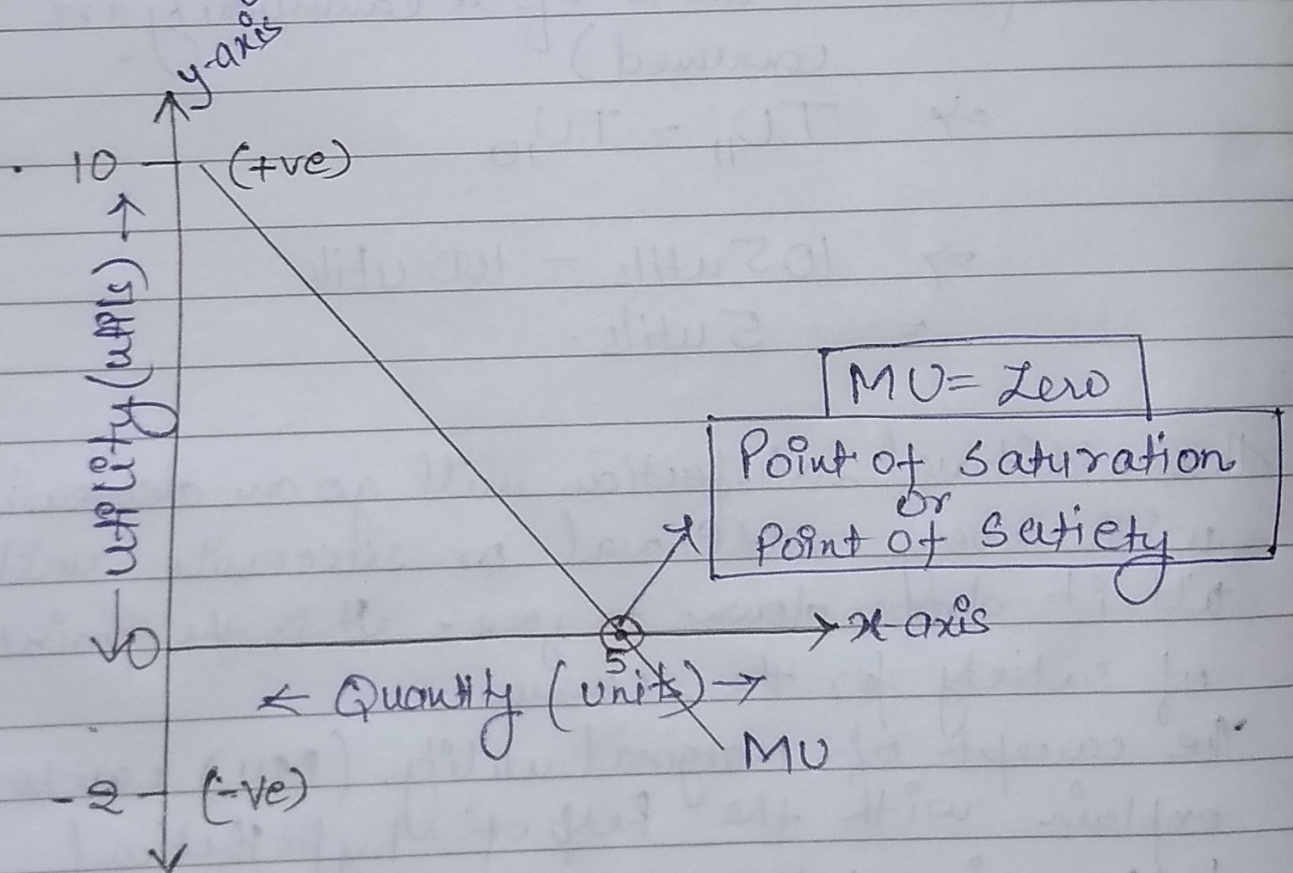 y-axis
10 (+ve)
← utility (utils) →
MU = Zero
Point of Saturation
or
Point of Satiety
0
x-axis
5
← Quantity (units) →
MU
-2 (-ve)